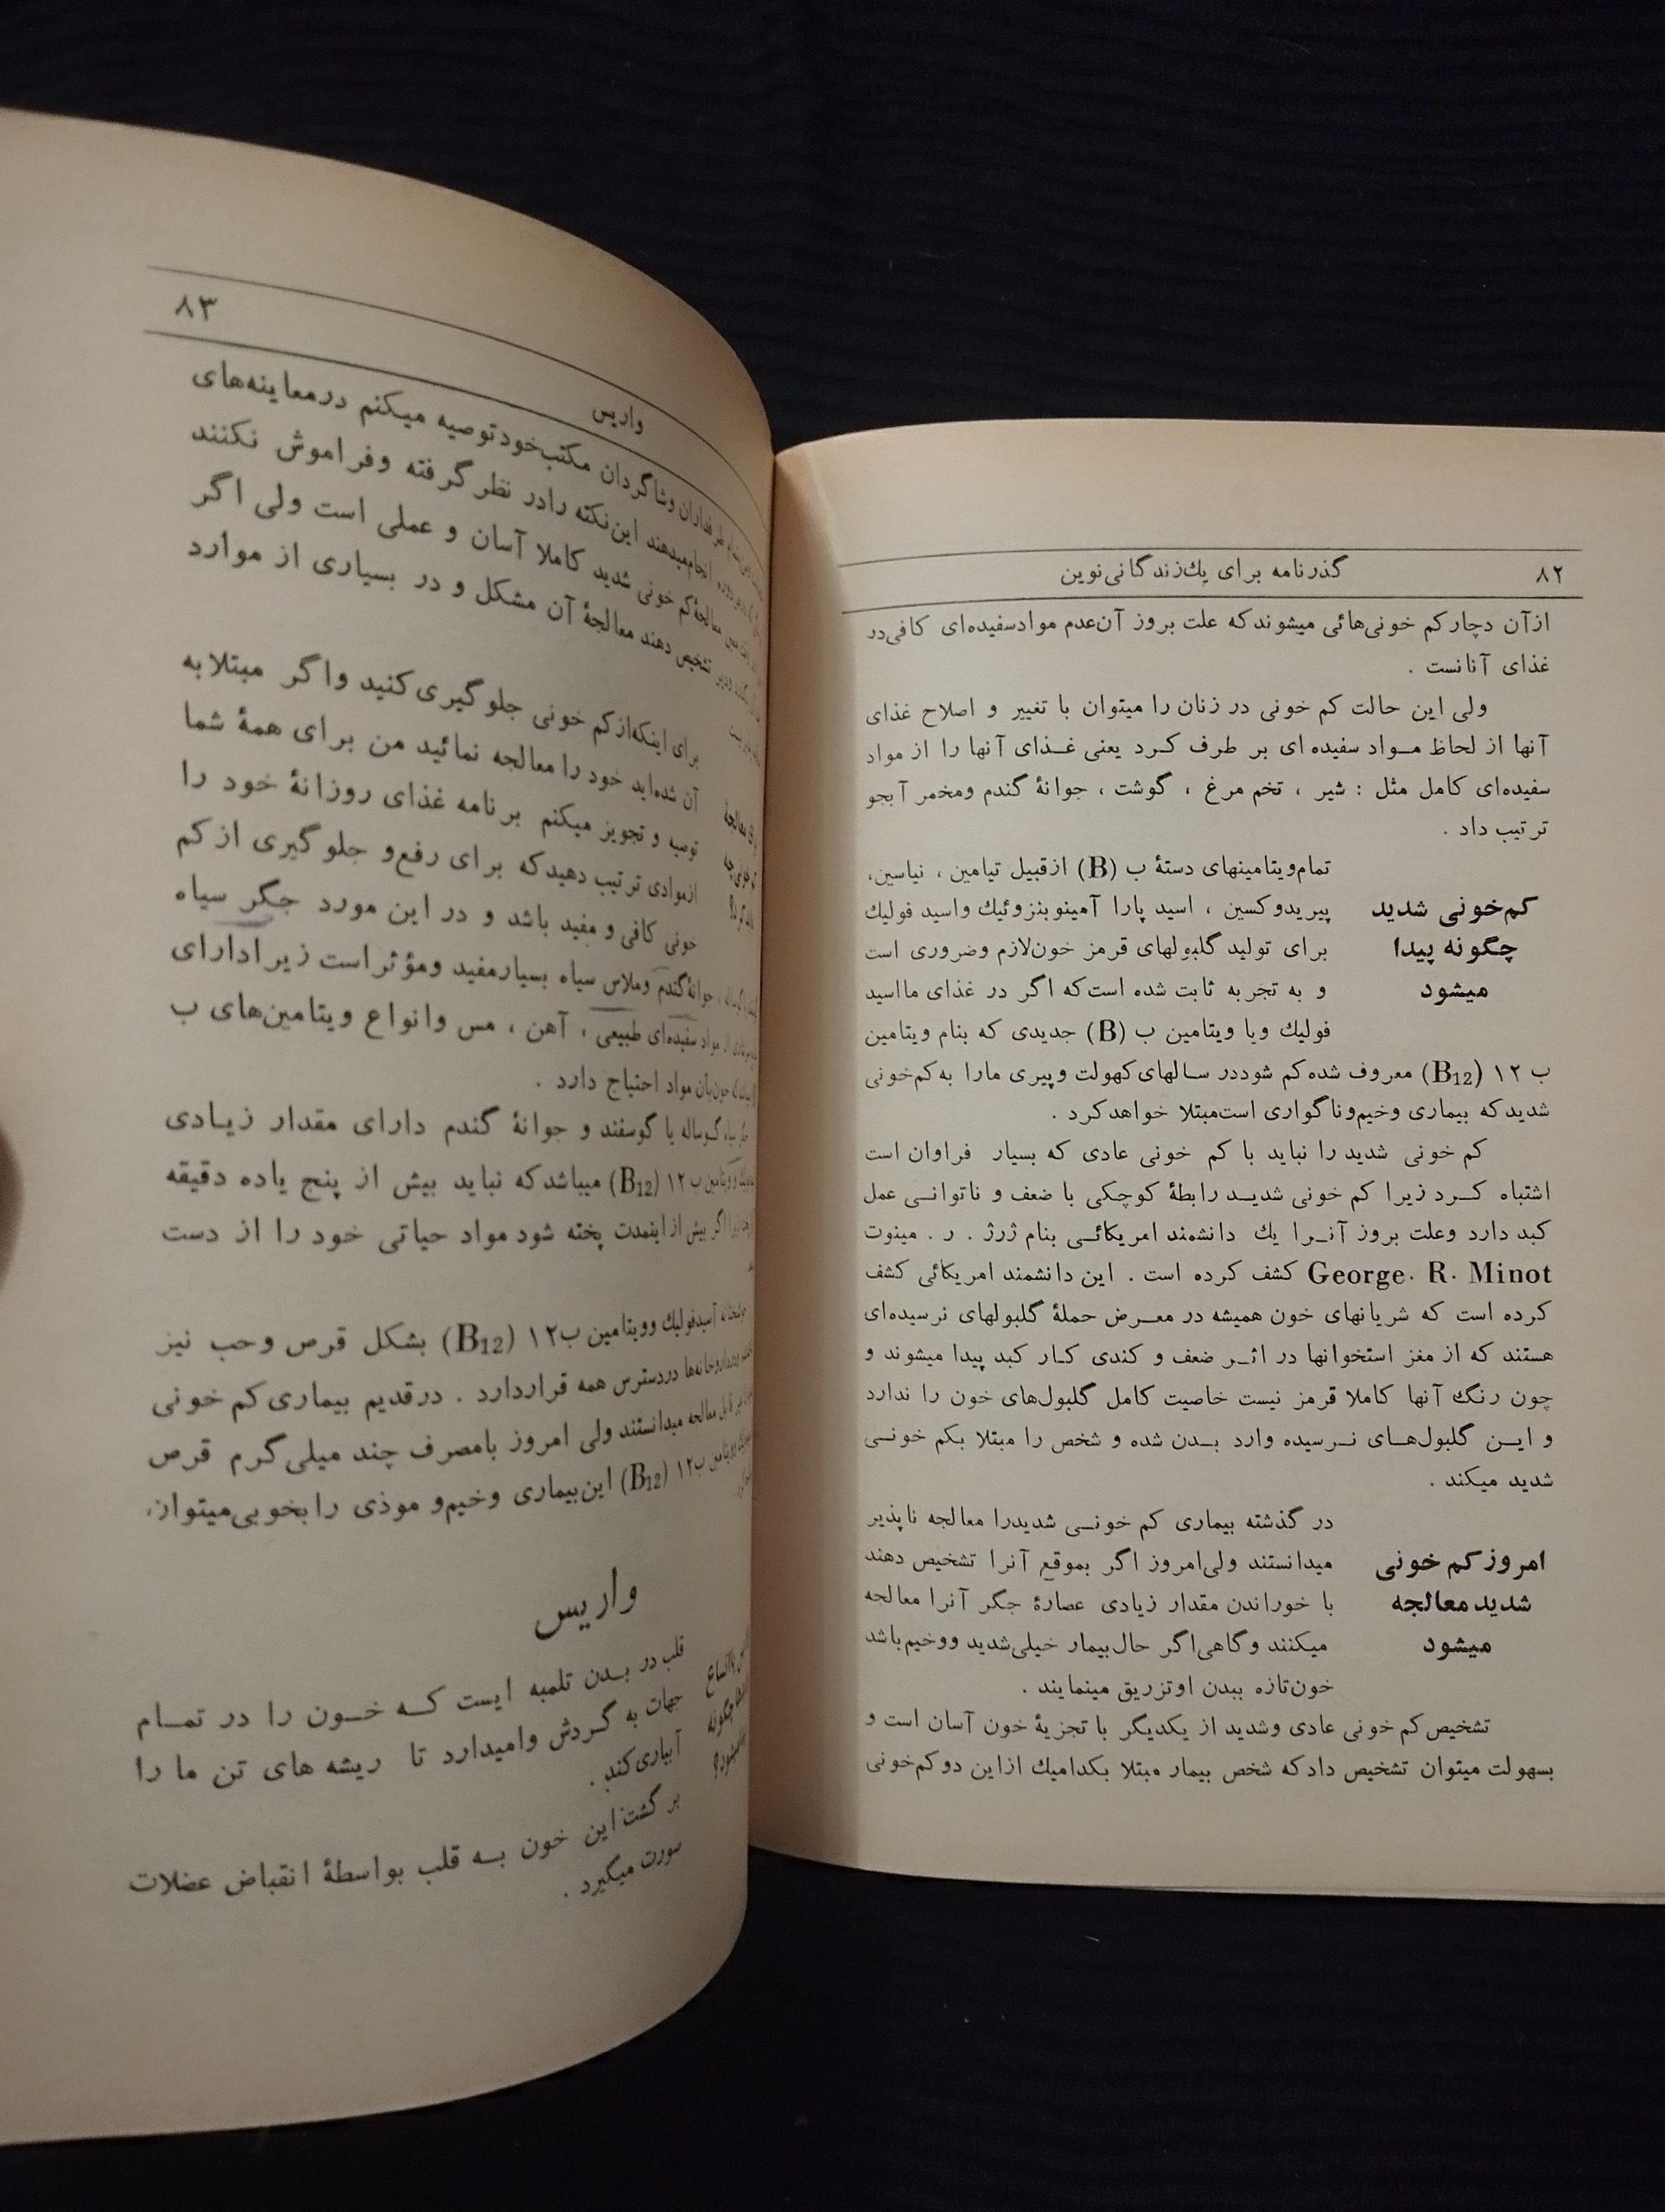 ۸۲
گذرنامه برای یك‌زندگانی‌نوین
ازآن دچارکم خونی‌هائی میشوندکه علت بروز آن‌عدم موادسفیده‌ای کافی‌در
غذای آنانست .
ولی این حالت کم خونی در زنان را میتوان با تغییر و اصلاح غذای
آنها از لحاظ مـواد سفیده ای بر طرف کـرد یعنی غـذای آنها را از مواد
سفیده‌ای کامل مثل : شیر ، تخم مرغ ، گوشت ، جوانهٔ گندم ومخمر آبجو
ترتیب داد .
کم‌خونی شدید
چگونه پیدا
میشود
تمام‌ویتامینهای دستهٔ ب (B) ازقبیل تیامین ، نیاسین،
پیریدوکسین ، اسید پارا آمینوبنزوئیك واسید فولیك
برای تولید گلبولهای قرمز خون‌لازم وضروری است
و به تجربه ثابت شده است‌که اگر در غذای مااسید
فولیك ویا ویتامین ب (B) جدیدی که بنام ویتامین
ب ۱۲ (B12) معروف شده‌کم شوددر سـالهای‌کهولت وپیری مارا به‌کم‌خونی
شدیدکه بیماری وخیم‌وناگواری است‌مبتلا خواهدکرد .
کم خونی شدید را نباید با کم خونی عادی که بسیار فراوان است
اشتباه کـرد زیرا کم خونی شدیـد رابطهٔ کوچکی با ضعف و ناتوانـی عمل
کبد دارد وعلت بروز آنـرا یك دانشمند امریکائـی بنام ژرژ . ر . مینوت
George. R. Minot کشف کرده است . این دانشمند امریکائی کشف
کرده است که شریانهای خون همیشه در معـرض حملهٔ گلبولهای نرسیده‌ای
هستند که از مغز استخوانها در اثـر ضعف و کندی کـار کبد پیدا میشوند و
چون رنگ آنها کاملا قرمز نیست خاصیت کامل گلبول‌های خون را ندارد
و ایـن گلبول‌هـای نـرسیده وارد بـدن شده و شخص را مبتلا بکم خونـی
شدید میکند .
امروزکم خونی
شدیدمعالجه
میشود
در گذشته بیماری کم خونـی شدیدرا معالجه ناپذیر
میدانستند ولی‌امروز اگر بموقع آنرا تشخیص دهند
با خوراندن مقدار زیادی عصارهٔ جگر آنرا معالجه
میکنند وگاهی‌اگر حال‌بیمار خیلی‌شدید ووخیم‌باشد
خون‌تازه ببدن اوتزریق مینمایند .
تشخیص‌کم خونی عادی وشدید از یکدیگر با تجزیهٔ خون آسان است و
بسهولت میتوان تشخیص دادکه شخص بیمار مبتلا بکدامیك ازاین دوکم‌خونی
واریس
۸۳
طرفداران وشاگردان مکتب‌خودتوصیه میکنم درمعاینه‌های
انجام‌میدهند این‌نکته رادر نظرگرفته وفراموش نکنند
معالجهٔ‌کم خونی شدید کاملا آسان و عملی است ولی اگر
تشخیص دهند معالجهٔ آن مشکل و در بسیاری از موارد
برای اینکه‌ازکم خونی جلوگیری‌کنید واگر مبتلابه
آن شده‌اید خود را معالجه نمائید من برای همهٔ شما
توصیه و تجویز میکنم برنامه غذای روزانهٔ خود را
ازموادی ترتیب دهیدکه برای رفع‌و جلوگیری ازکم
خونی کافی و مفید باشد و در این مورد جگر سیاه
جوانهٔ‌گندم وملاس سیاه بسیارمفید ومؤثراست زیرادارای
مواد سفیده‌ای طبیعی ، آهن ، مس وانواع ویتامین‌های ب
که خون‌بآن مواد احتیاج دارد .
گـوساله یا گوسفند و جوانهٔ گندم دارای مقدار زیـادی
ویتامین ب ۱۲ (B12) میباشدکه نباید بیش از پنج یاده دقیقه
اگر بیش از اینمدت پخته شود مواد حیاتی خود را از دست
اسیدفولیك وویتامین ب۱۲ (B12) بشکل قرص وحب نیز
دردسترس همه قراردارد . درقدیم بیماری‌کم خونی
معالجه میدانستند ولی امروز بامصرف چند میلی‌گرم قرص
ب۱۲ (B12) این‌بیماری وخیم‌و موذی رابخوبی‌میتوان
واریس
قلب در بـدن تلمبه ایست کـه خـون را در تمـام
جهات به گـردش وامیدارد تا ریشه های تن ما را
آبیاری‌کند .
برگشت‌این خون بـه قلب بواسطهٔ انقباض عضلات
صورت میگیرد .